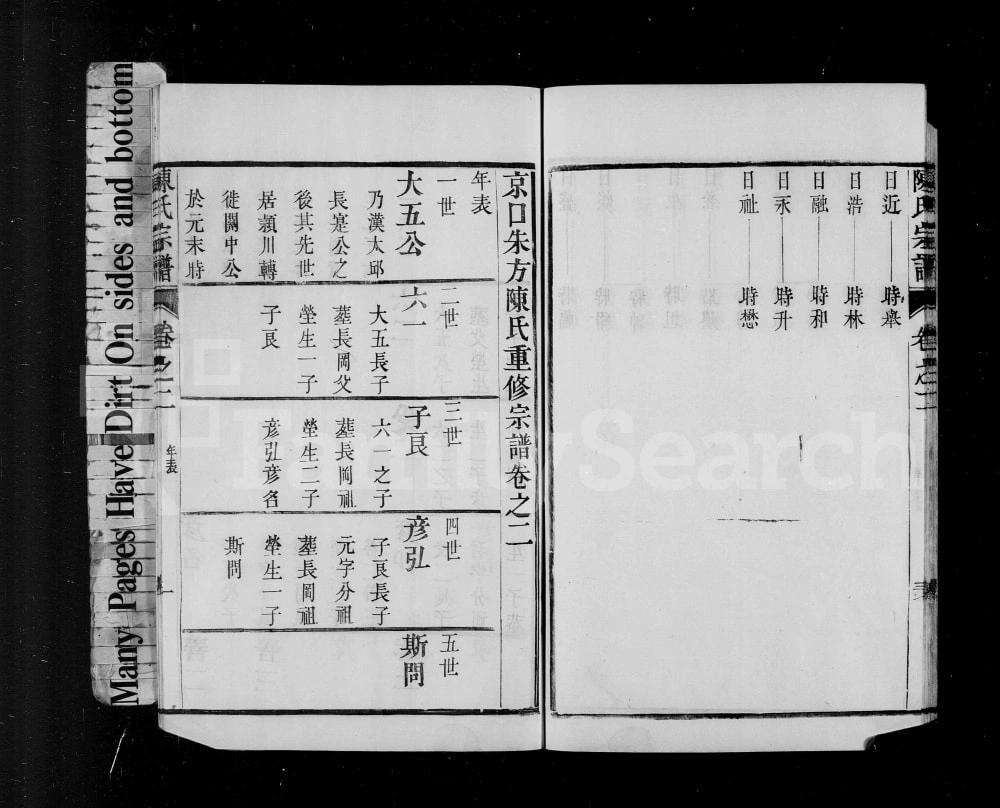 陳氏宗譜
卷之二
日近 時舉
日浩 時林
日融 時和
日永 時升
日祉 時懋
京口朱方陳氏重修宗譜卷之二
年表
一世
大五公
乃漢太邱
長寔公之
後其先世
居潁川轉
徙閩中公
於元末時
二世
六一
大五長子
墓長岡父
塋生一子
子良
三世
子良
六一之子
墓長岡祖
塋生二子
彥弘彥名
四世
彥弘
子良長子
元字分祖
墓長岡祖
塋生一子
斯問
五世
斯問
陳氏宗譜
卷之二
年表
一
Many Pages Have Dirt On sides and bottom
FamilySearch